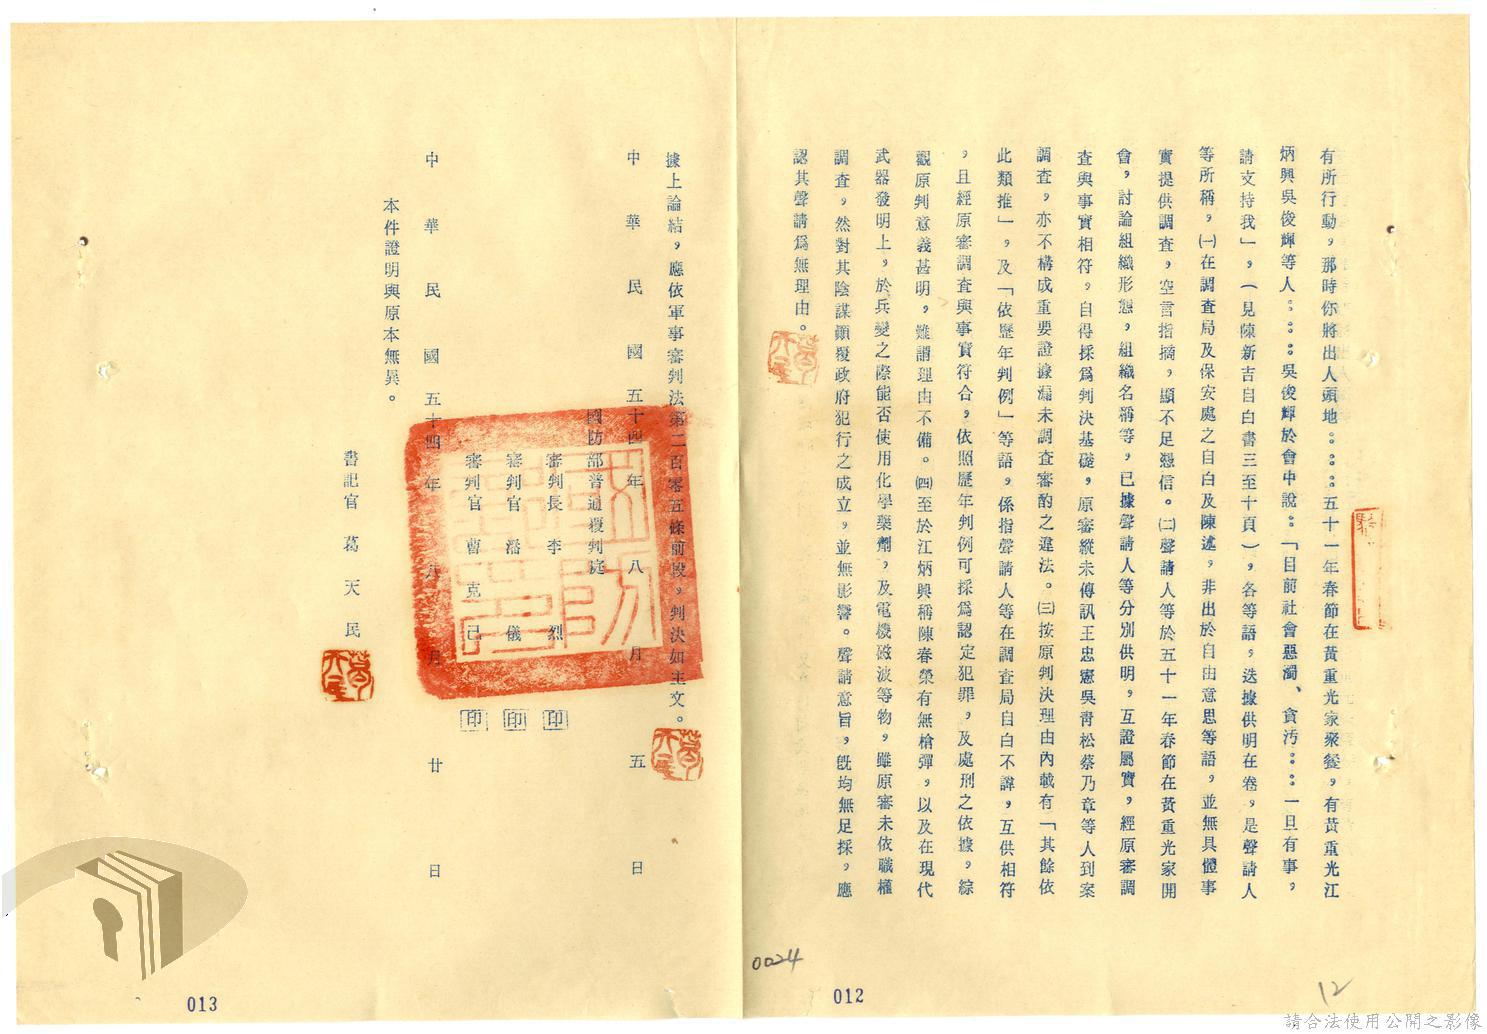 有所行動，那時你將出人頭地：：：：五十一年春節在黃重光家聚餐，有黃重光江
炳興吳俊輝等人：：：：吳俊輝於會中說：「目前社會惡濁、貪汚：：：：一旦有事，
請支持我」，（見陳新吉自白書三至十頁），各等語，迭據供明在卷，是聲請人
等所稱，㈠在調查局及保安處之自白及陳述，非出於自由意思等語，並無具體事
實提供調查，空言指摘，顯不足憑信。㈡聲請人等於五十一年春節在黃重光家開
會，討論組織形態，組織名稱等，已據聲請人等分別供明，互證屬實，經原審調
查與事實相符，自得採爲判決基礎，原審縱未傳訊王忠憲吳靑松蔡乃章等人到案
調查，亦不構成重要證據漏未調查審酌之違法。㈢按原判決理由內載有「其餘依
此類推」，及「依歷年判例」等語，係指聲請人等在調查局自白不諱，互供相符
，且經原審調查與事實符合，依照歷年判例可採爲認定犯罪，及處刑之依據，綜
觀原判意義甚明，難謂理由不備。㈣至於江炳興稱陳春榮有無槍彈，以及在現代
武器發明上，於兵變之際能否使用化學藥劑，及電機磁波等物，雖原審未依職權
調查，然對其陰謀顚覆政府犯行之成立，並無影響。聲請意旨，旣均無足採，應
認其聲請爲無理由。
據上論結，應依軍事審判法第二百零五條前段，判決如主文。
中華民國五十四年八月五日
國防部普通覆判庭
審判長 李烈 印
審判官 潘儀 印
審判官 曹克己 印
中華民國五十四年八月廿日
本件證明與原本無異。
書記官 葛天民
0024
012
12
013
請合法使用公開之影像